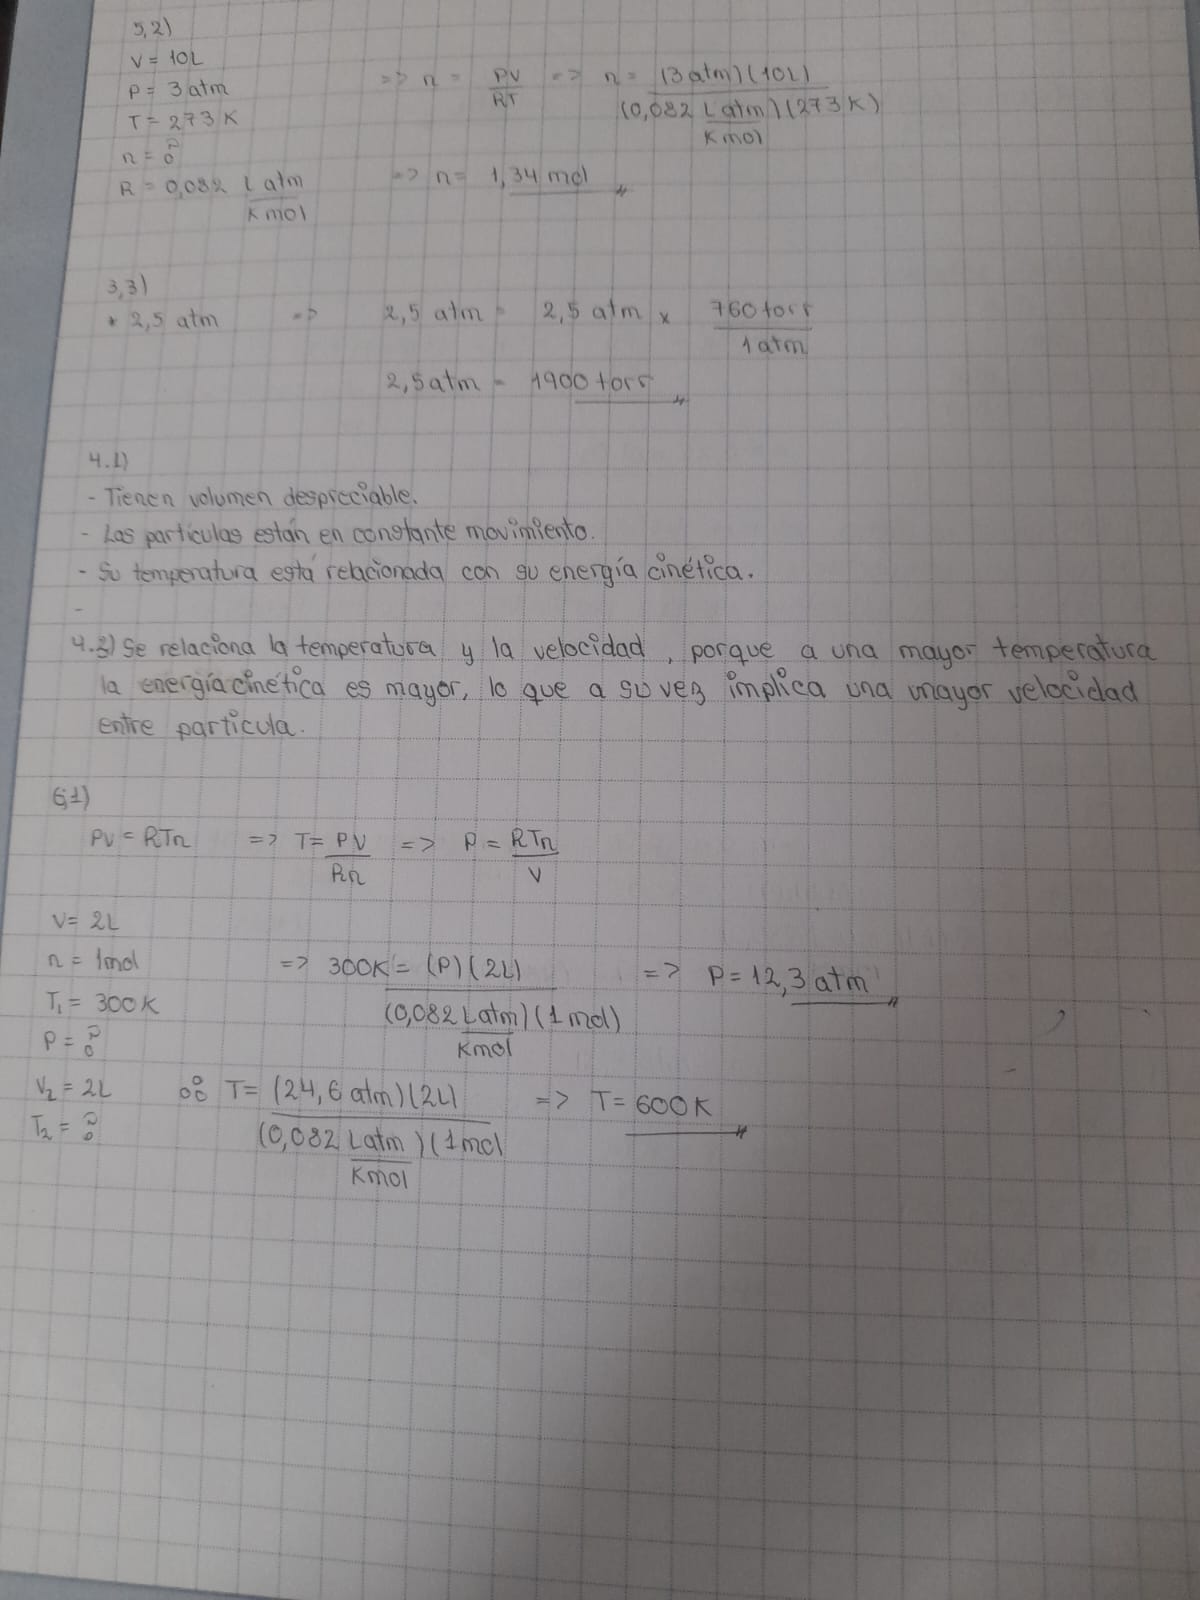 5,2)
V = 10L
P = 3 atm
T = 273 K
n = ?
R = 0,082 L atm / K mol
=> n = PV / RT => n = (3 atm) (10L) / (0,082 L atm / K mol) (273 K)
=> n = 1,34 mol
3,3)
* 2,5 atm => 2,5 atm = 2,5 atm x 760 torr / 1 atm
2,5 atm = 1900 torr
4.1)
- Tienen volumen despreciable.
- Las partículas están en constante movimiento.
- Su temperatura está relacionada con su energía cinética.
-
4.3) Se relaciona la temperatura y la velocidad, porque a una mayor temperatura
la energía cinética es mayor, lo que a su vez implica una mayor velocidad
entre partícula.
6,1)
PV = RTn => T = PV / Rn => P = RTn / V
V = 2L
n = 1mol
T₁ = 300K
P = ?
=> 300K = (P) (2L) / (0,082 L atm / K mol) (1 mol) => P = 12,3 atm
V₂ = 2L
T₂ = ?
T = (24,6 atm) (2L) / (0,082 L atm / K mol) (1 mol => T = 600K